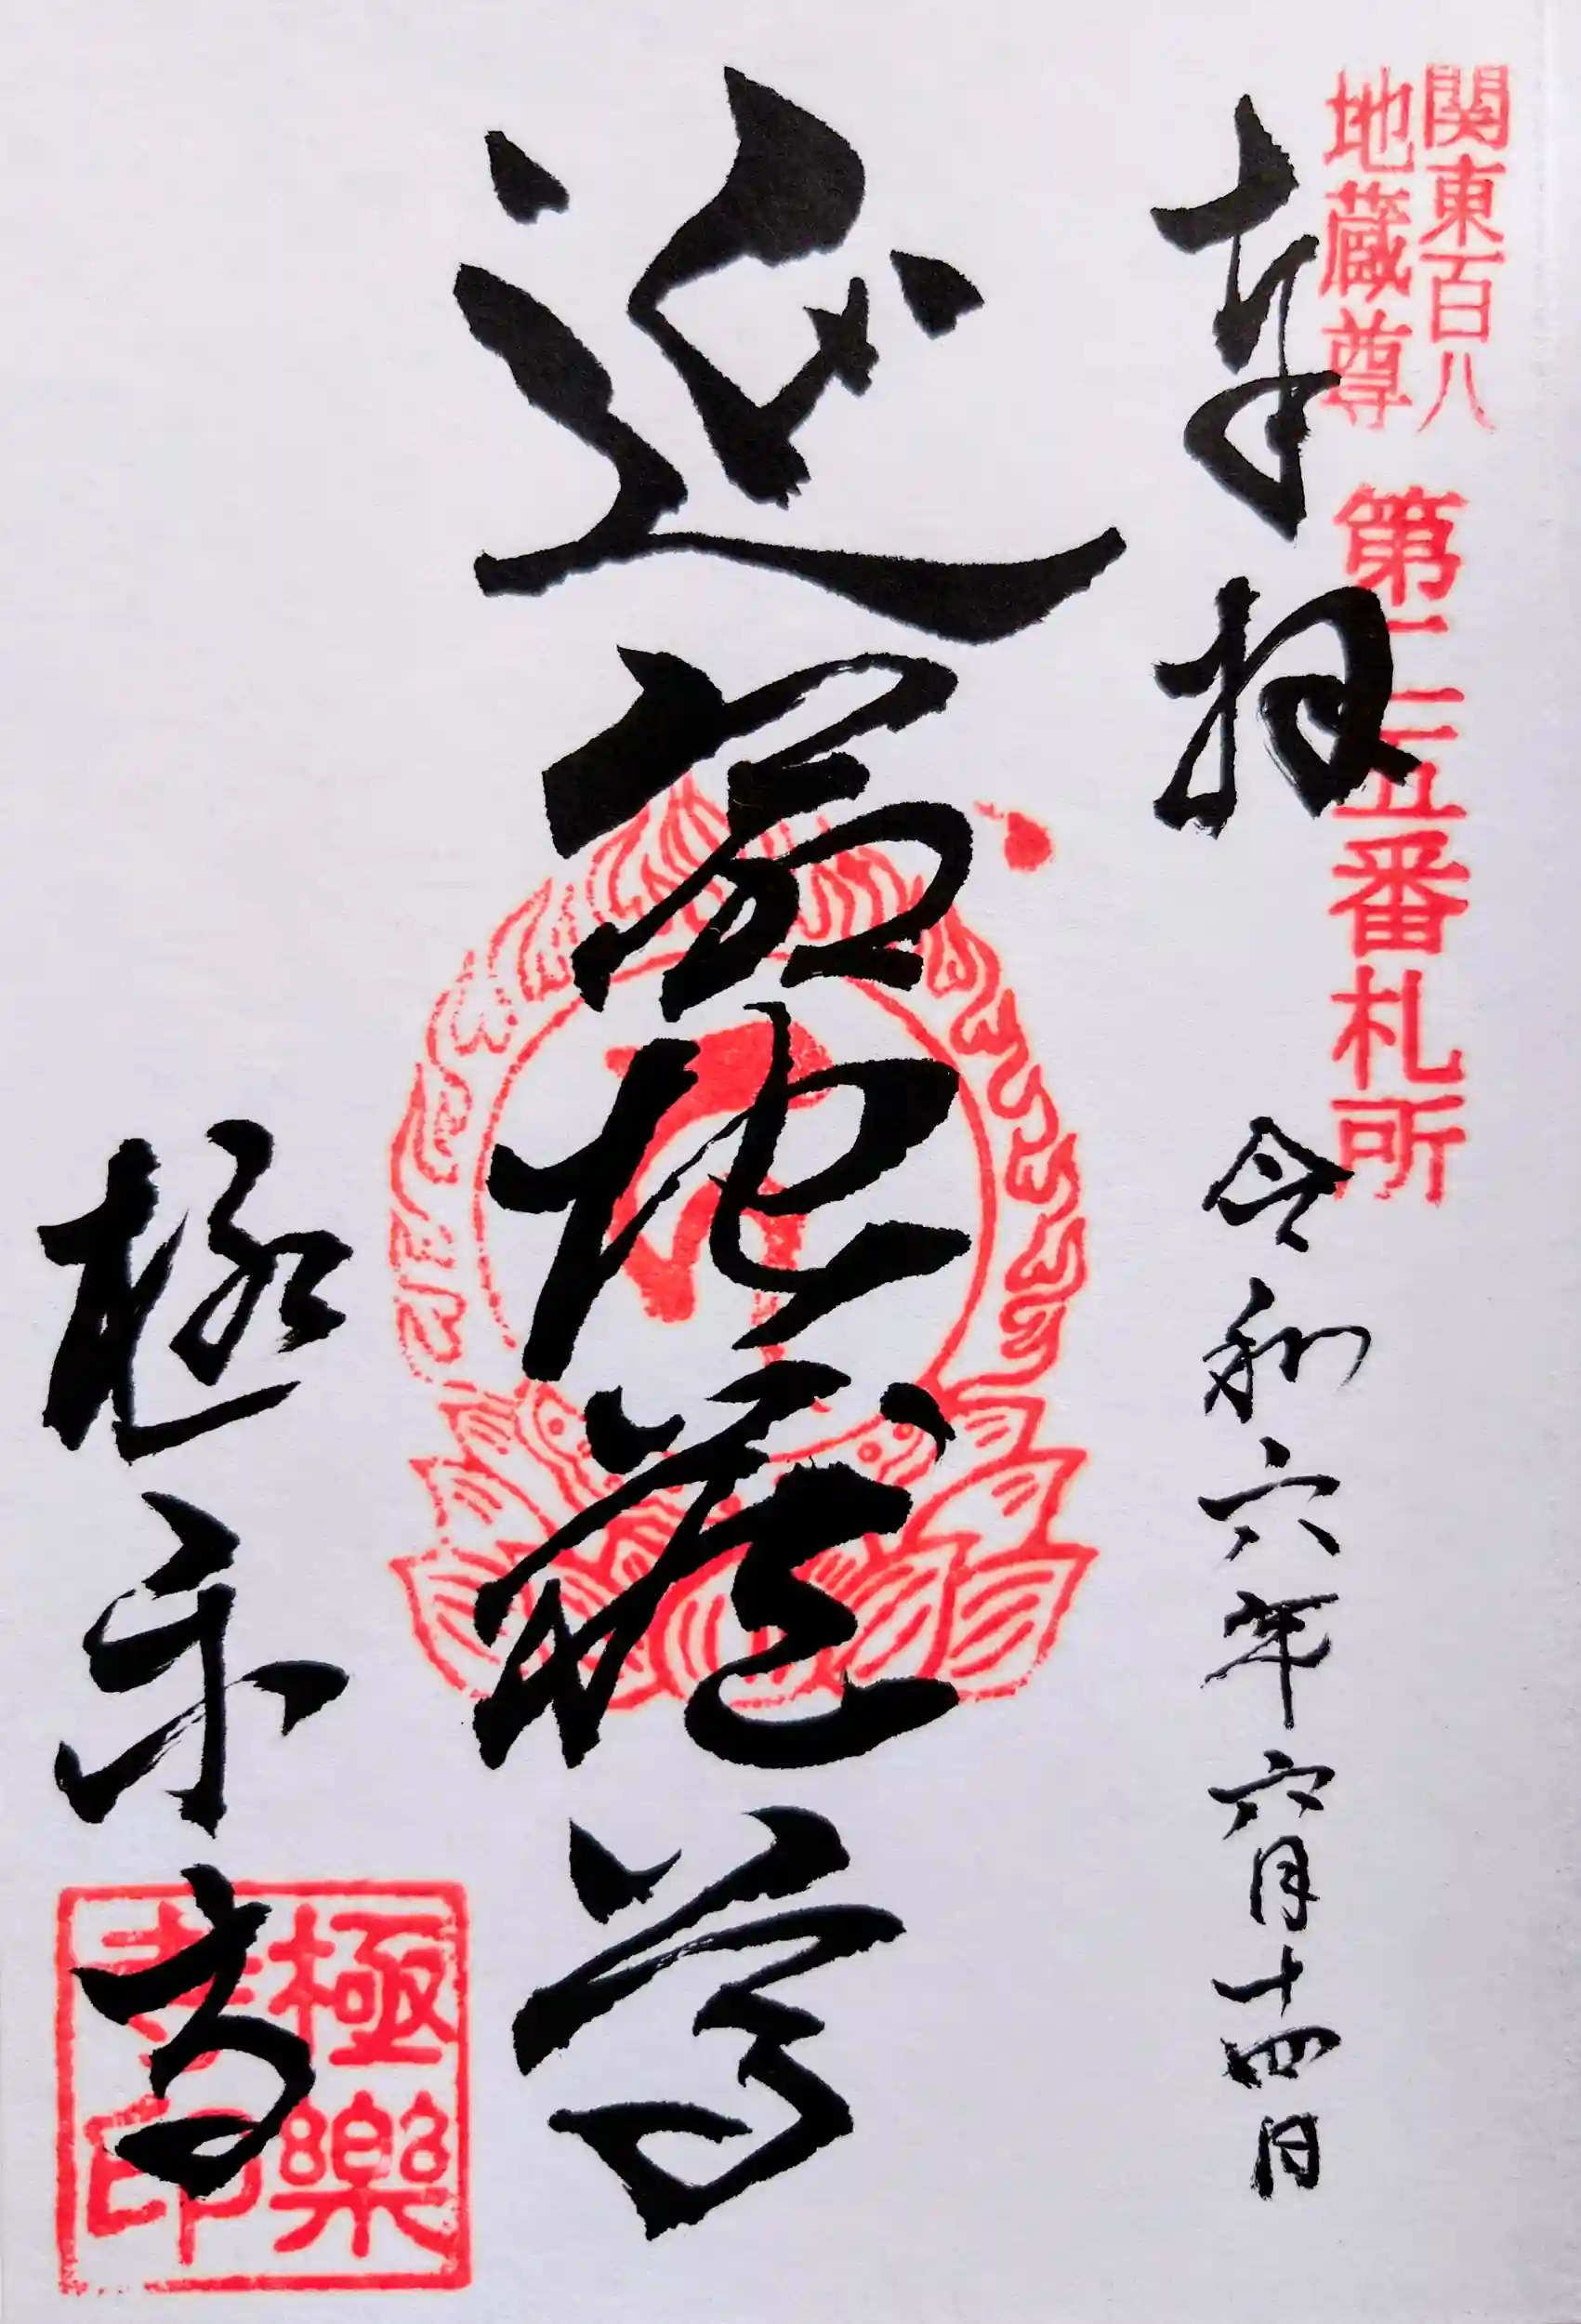 関東百八
地蔵尊
第二五番札所
奉拝
令和六年六月十四日
延命地蔵尊
極楽寺
極樂
寺印